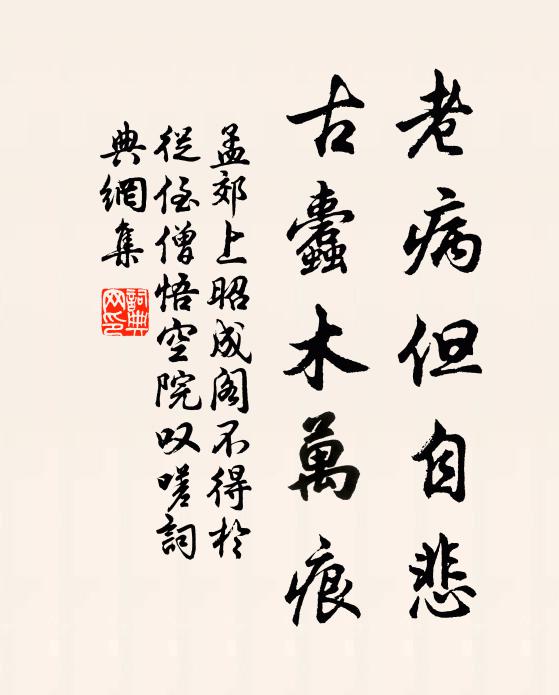 老病但自悲
古蠹木萬痕
孟郊上昭成阁不得於
從侄僧悟空院叹嗟詞
典網集
詞典
网印